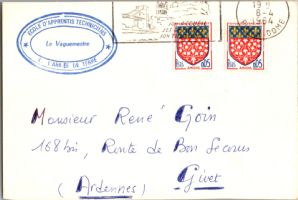 ÉCOLE D'APPRENTIS TECHNICIENS
Le Vaguemestre
L'ARMÉE DE TERRE
1964
0,05
0,05
Monsieur René Goin
168 bis, Route de Bon Secours
Givet
(Ardennes)